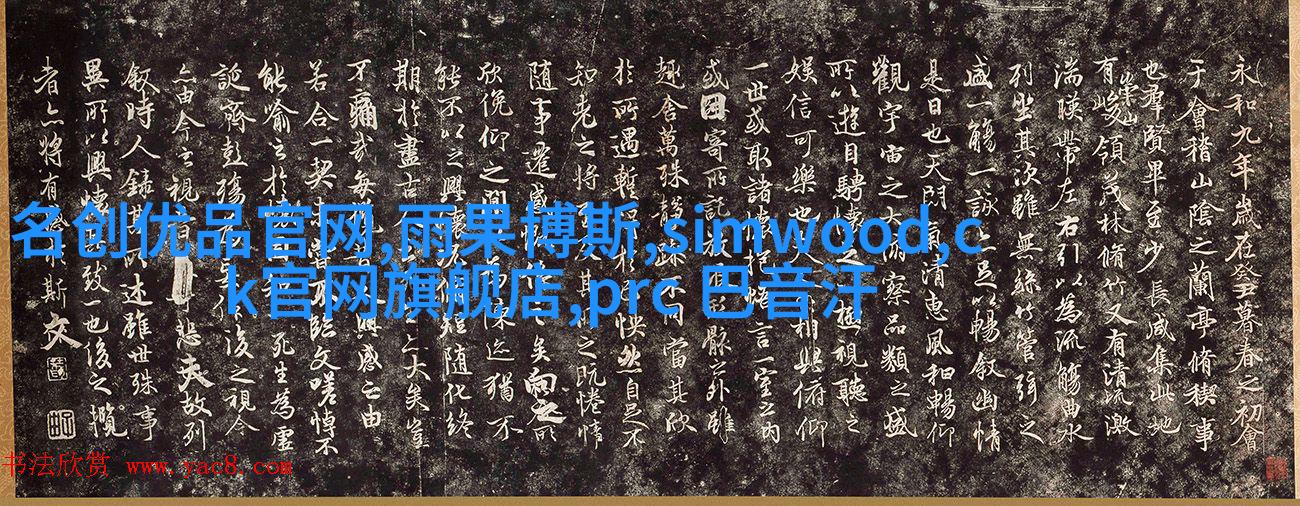 永和九年歲在癸丑暮春之初會
于會稽山陰之蘭亭脩稧事
也羣賢畢至少長咸集此地
有崇山峻領茂林脩竹又有清流激
湍暎帶左右引以為流觴曲水
列坐其次雖無絲竹管弦之
盛一觴一詠亦足以暢敘幽情
是日也天朗氣清惠風和暢仰
觀宇宙之大俯察品類之盛
所以遊目騁懷足以極視聽之
娛信可樂也夫人之相與俯仰
一世或取諸懷抱悟言一室之內
或因寄所託放浪形骸之外雖
趣舍萬殊靜躁不同當其欣
於所遇暫得於己快然自足不
知老之將至及其所之既惓情
隨事遷感慨係之矣向之所
欣俛仰之間以為陳迹猶不
能不以之興懷況脩短隨化終
期於盡古人云死生亦大矣豈
不痛哉每攬昔人興感之由
若合一契未嘗不臨文嗟悼不
能喻之於懷固知一死生為虛
誕齊彭殤為妄作後之視今
亦由今之視昔悲夫故列
敘時人錄其所述雖世殊事
異所以興懷其致一也後之攬
者亦將有感於斯文
名创优品官网,雨果博斯,simwood,c
k官网旗舰店,prc 巴音汗
书法欣赏 www.yac8.com